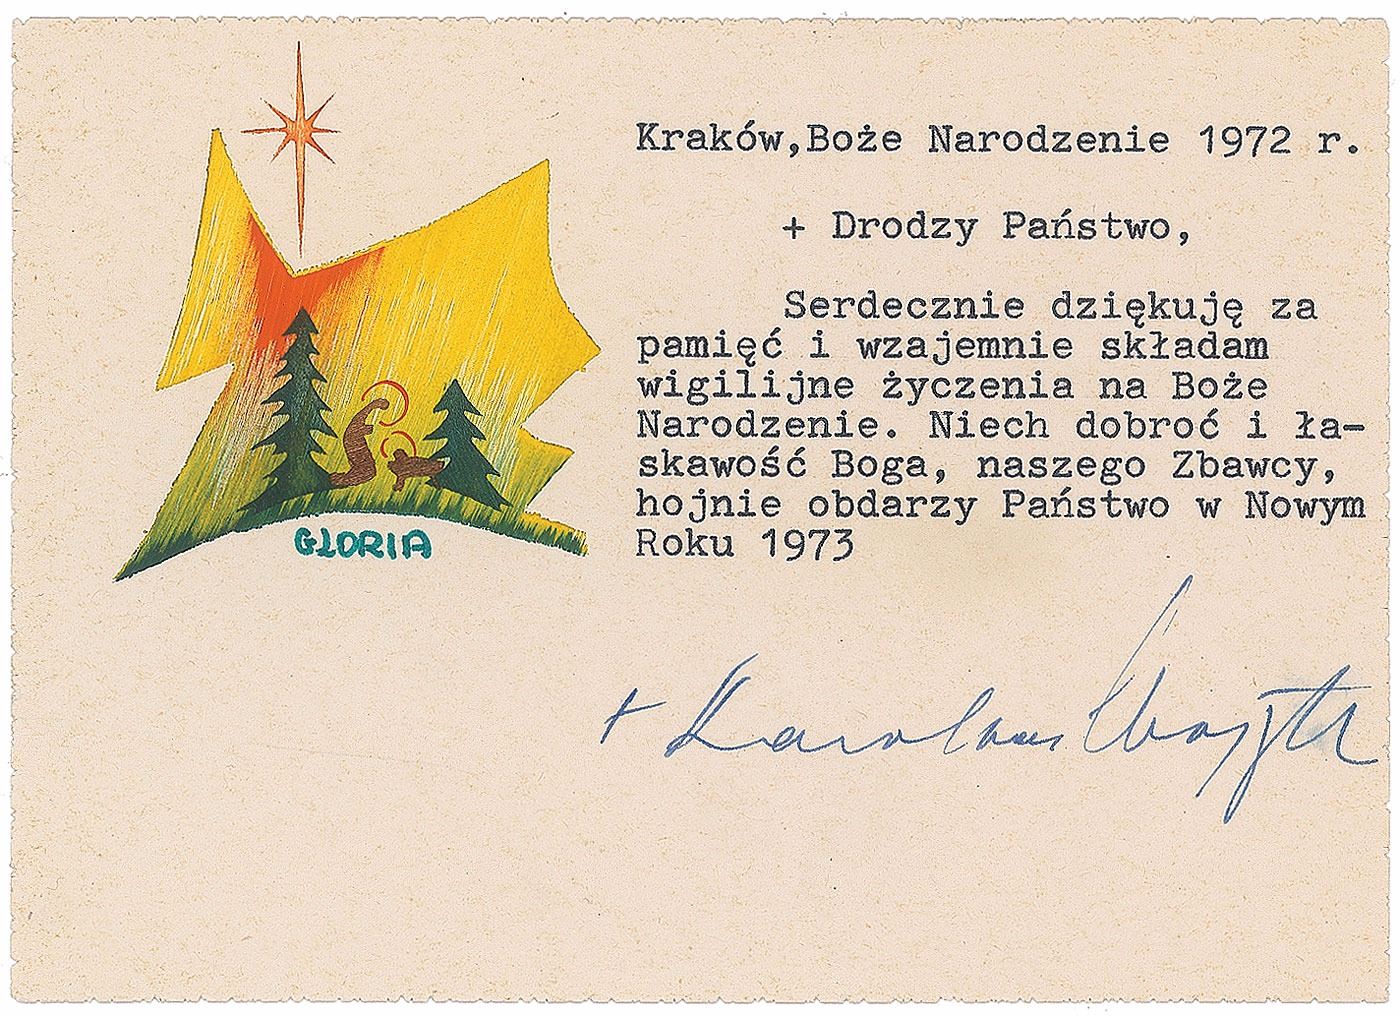 Kraków,Boże Narodzenie 1972 r.
+ Drodzy Państwo,
Serdecznie dziękuję za
pamięć i wzajemnie składam
wigilijne życzenia na Boże
Narodzenie. Niech dobroć i ła-
skawość Boga, naszego Zbawcy,
hojnie obdarzy Państwo w Nowym
Roku 1973
GLORIA
+ Karol kard. Wojtyła